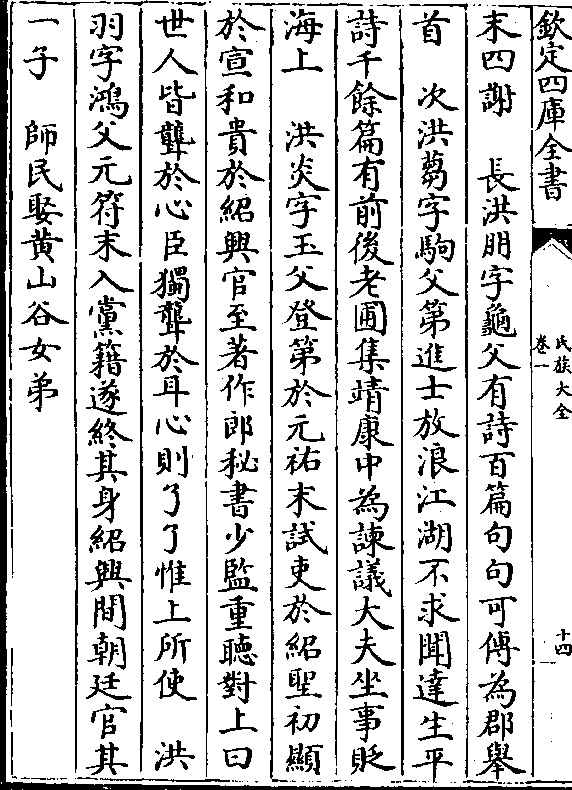 欽定四庫全書
氏族大全
卷一
十四
末四謝　長洪朋字龜父有詩百篇句句可傳為郡舉
首　次洪芻字駒父第進士放浪江湖不求聞達生平
詩千餘篇有前後老圃集靖康中為諫議大夫坐事貶
海上　洪炎字玉父登第於元祐末試吏於紹聖初顯
於宣和貴於紹興官至著作郎秘書少監重聽對上曰
世人皆聾於心臣獨聾於耳心則了了惟上所使　洪
羽字鴻父元符末入黨籍遂終其身紹興間朝廷官其
一子　師民娶黄山谷女弟